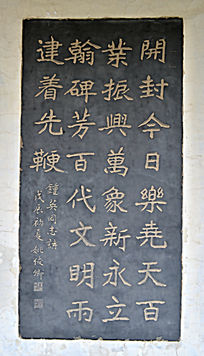 開封今日樂堯天百
業振興萬象新永立
翰碑芳百代文明兩
建着先鞭
鐘英同志講
戊辰初夏姚俊卿